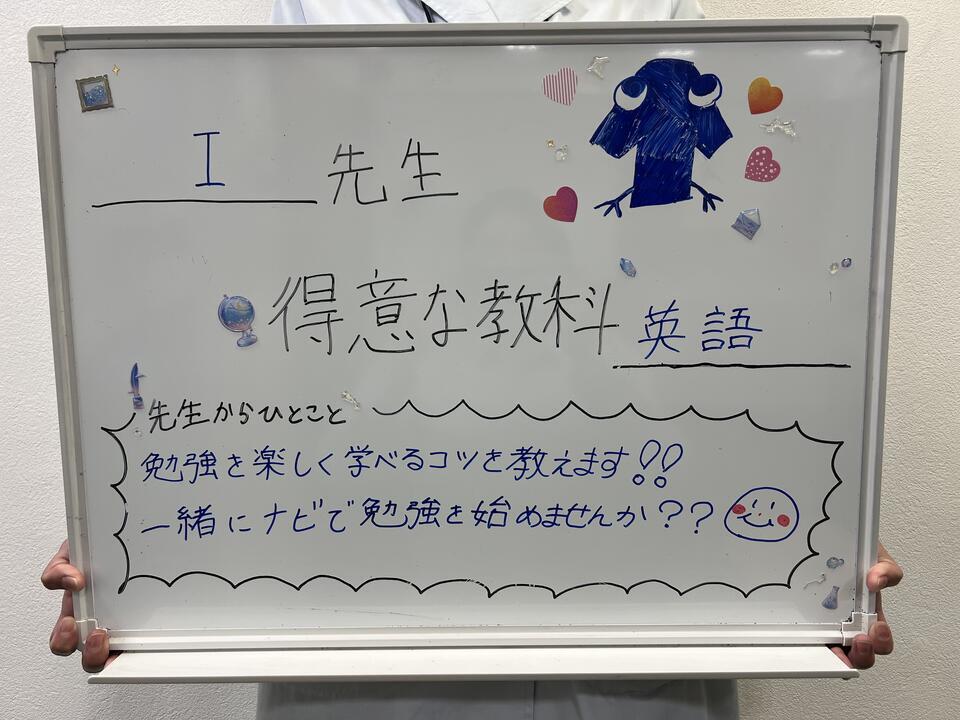 I 先生
得意な教科 英語
先生からひとこと
勉強を楽しく学べるコツを教えます!!
一緒にナビで勉強を始めませんか??